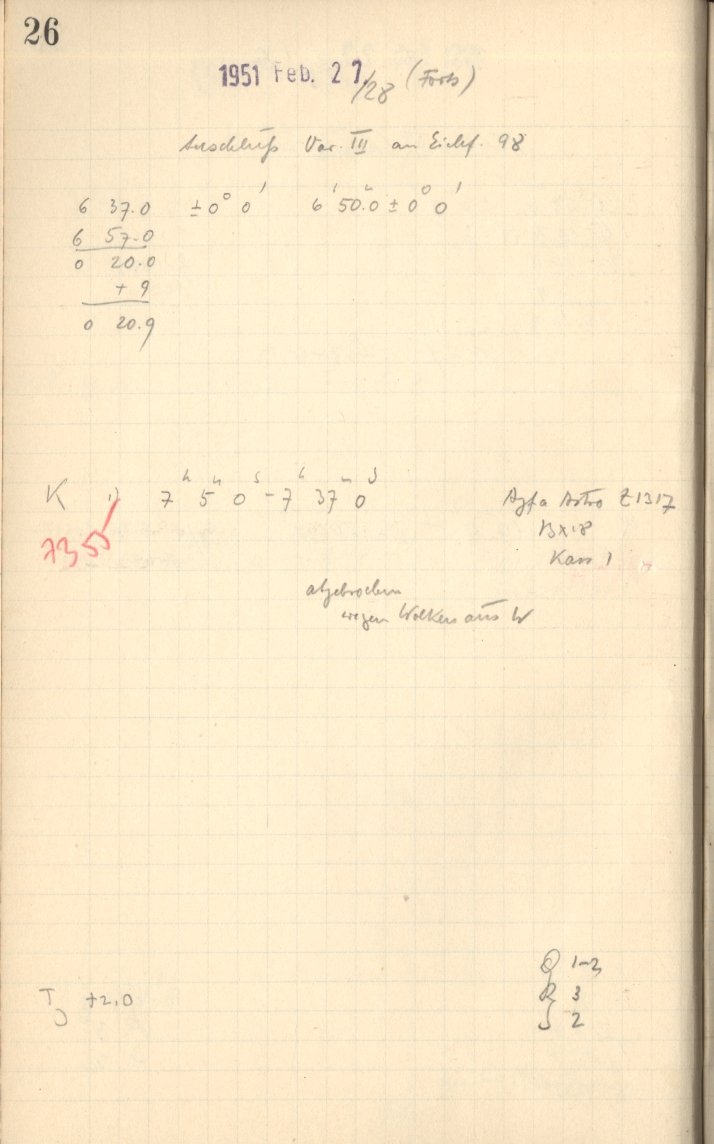 26
1951 Feb. 27./28 (Forts)
Anschluß Var. III an Eichf. 98
6 37.0 ±0° 0' 6 50.0 ± 0° 0'
6 57.0
0 20.0
+ 9
0 20.9
K 1) 7h 5m 0s - 7h 37m 0s Agfa Astro Z1317
7355 Kass 1
abgebrochen
wegen Wolken aus W
Q 1-2
T +2.0 R 3
S 2